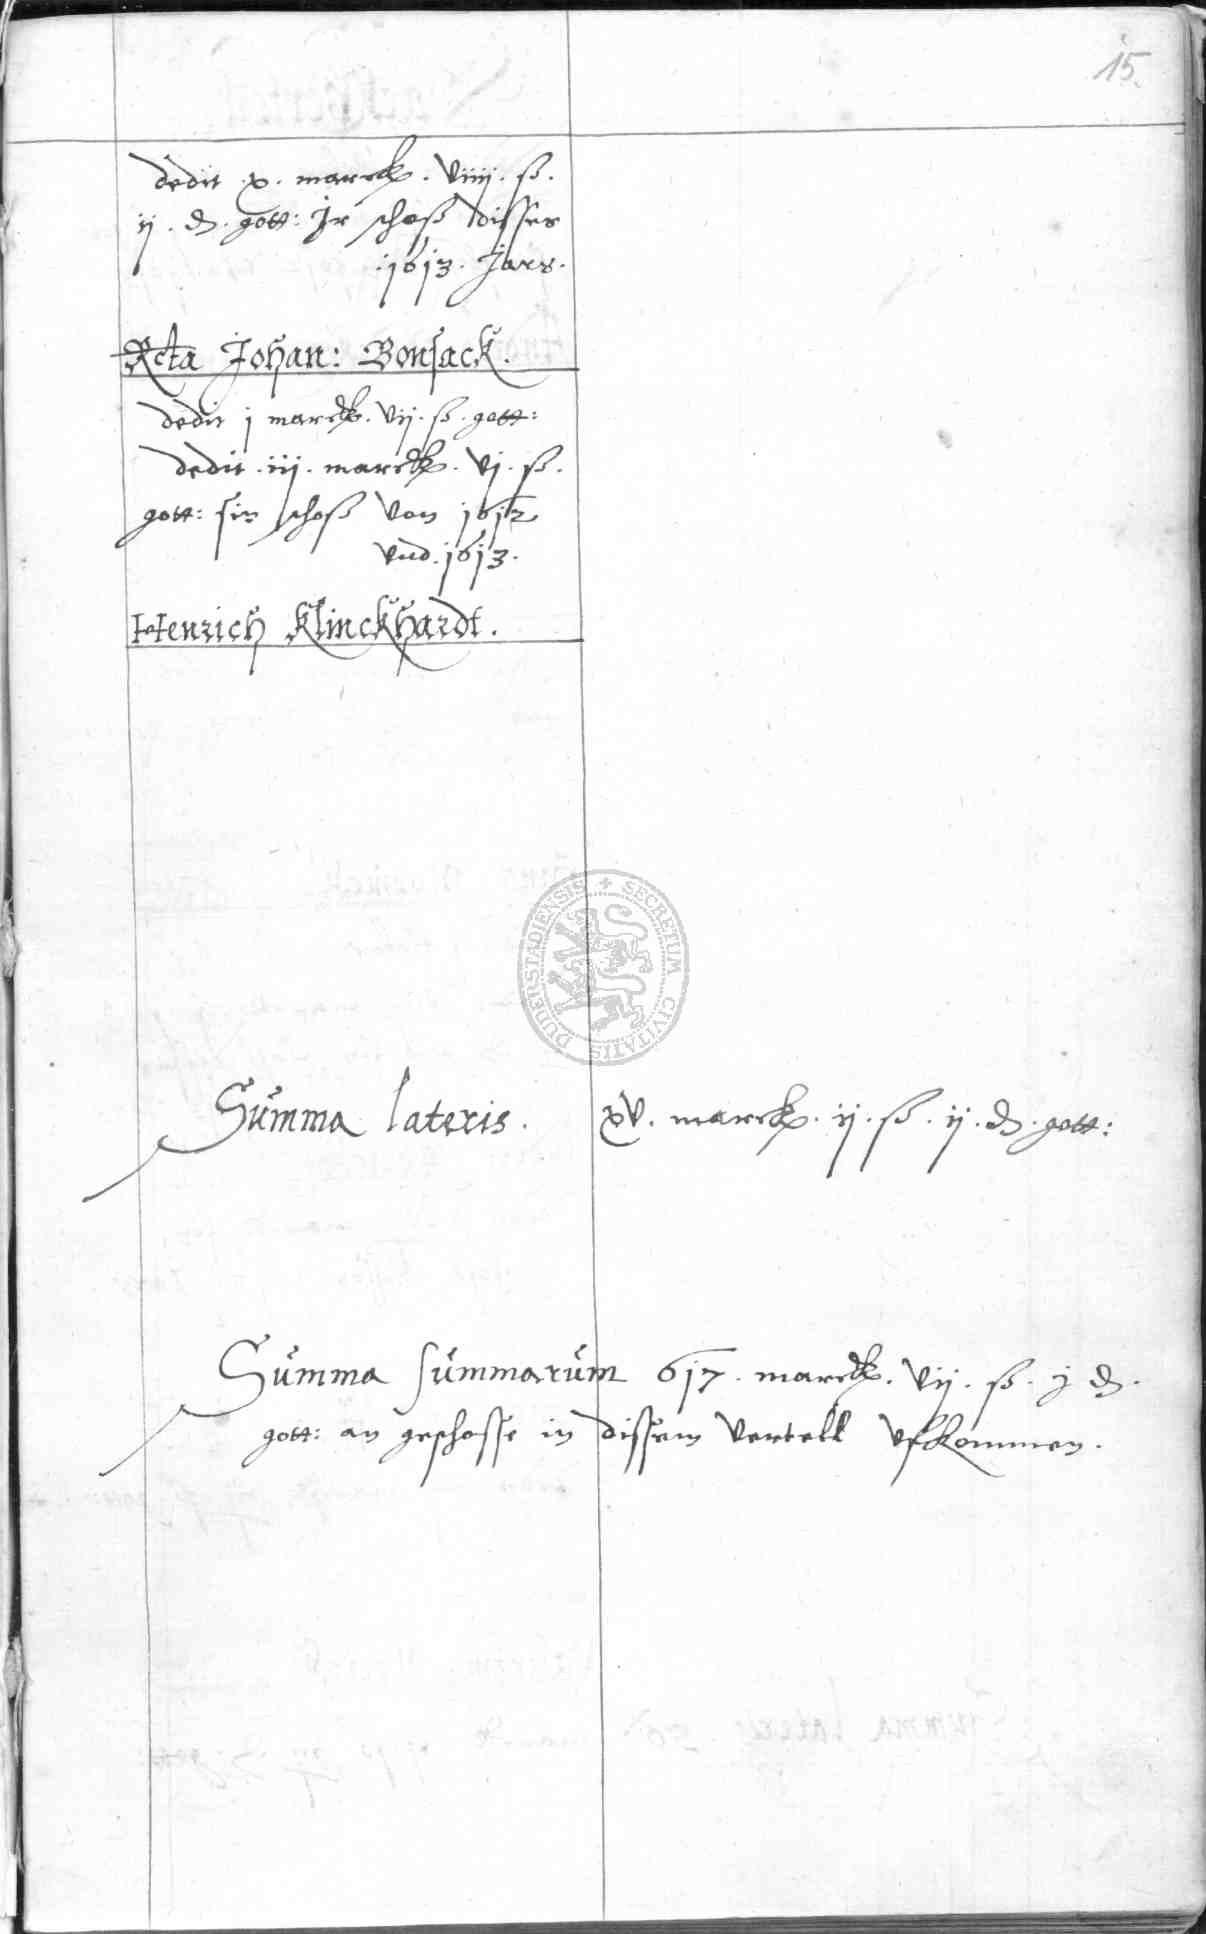 15.
dedit .x. marck. viiij. ß.
ij. d. gott: Ir schoß disses
.1613. Jars.
Rcta Johan: Bonsack.
dedit j marck. vij. ß. gott:
dedit .iij. marck. vj. ß.
gott: sin schoß von 1612
vnd .1613.
Henrich Klinckhardt.
DUDERSTADIENSIS + SECRETUM CIVITATIS
Summa lateris. xv. marck. ij. ß. ij. d. gott:
Summa summarum 617. marck. vij. ß. j d.
gott: an geschosse in dissem vertell vfkommen.